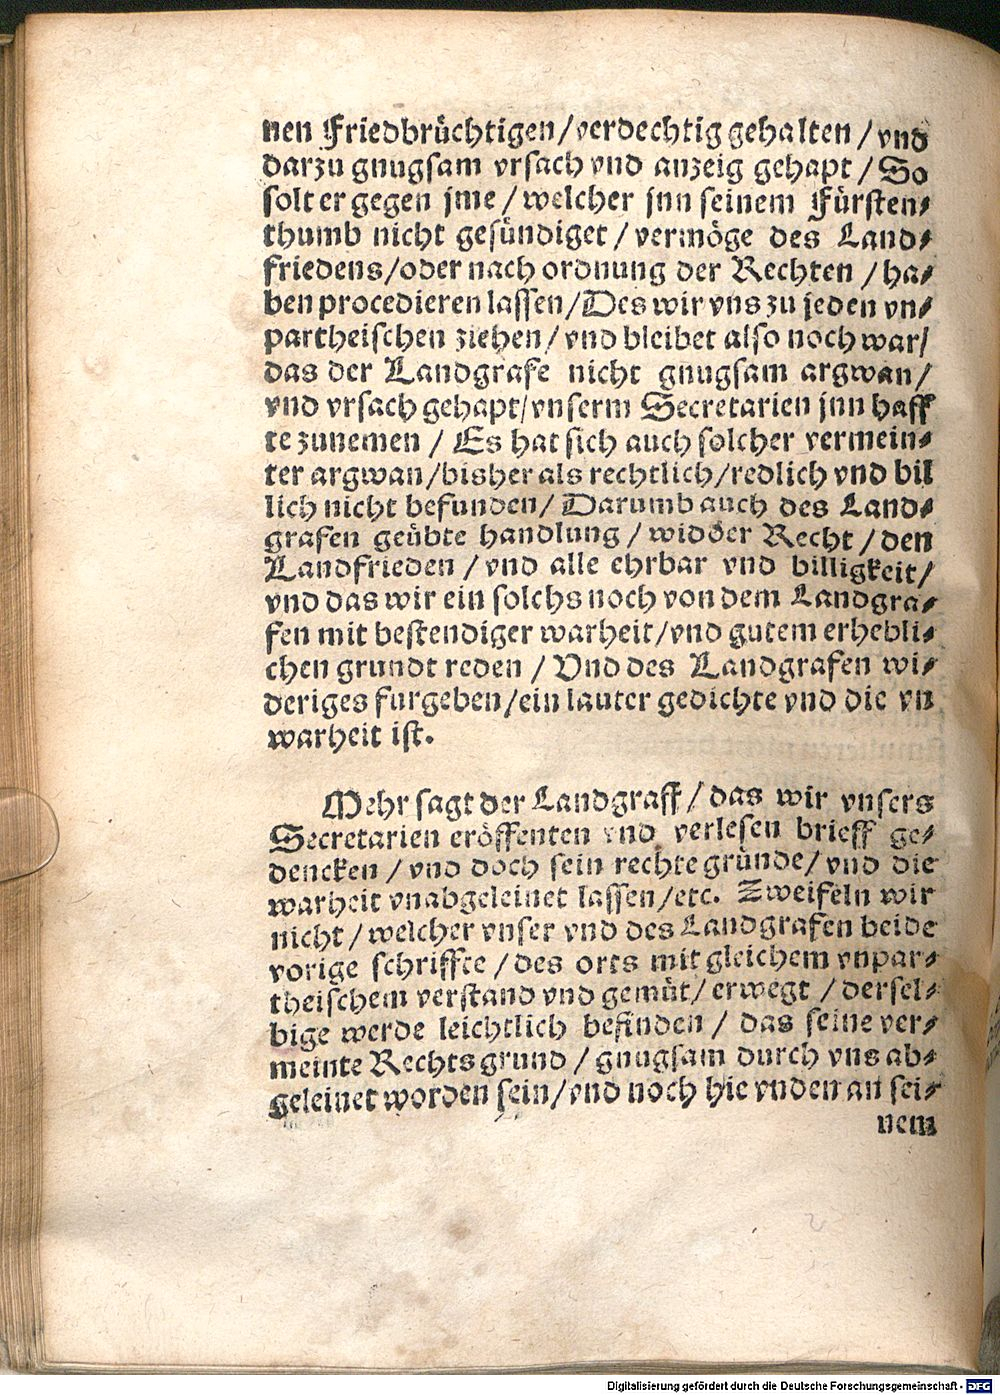 nen Friedbrüchtigen/verdechtig gehalten/vnd
darzu gnugsam vrsach vnd anzeig gehapt/So
solt er gegen jme/welcher jnn seinem Fürsten⸗
thumb nicht gesündiget/vermöge des Land⸗
friedens/oder nach ordnung der Rechten/ha⸗
ben procedieren lassen/Des wir vns zu jeden vn⸗
partheischen ziehen/vnd bleibet also noch war/
das der Landgrafe nicht gnugsam argwan/
vnd vrsach gehapt/vnserm Secretarien jnn haff
te zunemen/Es hat sich auch solcher vermein⸗
ter argwan/bisher als rechtlich/redlich vnd bil
lich nicht befunden/Darumb auch des Land⸗
grafen geübte handlung/widder Recht/den
Landfrieden/vnd alle ehrbar vnd billigkeit/
vnd das wir ein solchs noch von dem Landgra⸗
fen mit bestendiger warheit/vnd gutem erhebli⸗
chen grundt reden/Vnd des Landgrafen wi⸗
deriges furgeben/ein lauter gedichte vnd die vn
warheit ist.
Mehr sagt der Landgraff/das wir vnsers
Secretarien eröffenten vnd verlesen brieff ge⸗
dencken/vnd doch sein rechte gründe/vnd die
warheit vnabgeleinet lassen/etc. Zweifeln wir
nicht/welcher vnser vnd des Landgrafen beide
vorige schriffte/des orts mit gleichem vnpar⸗
theischem verstand vnd gemüt/erwegt/dersel⸗
bige werde leichtlich befinden/das seine ver⸗
meinte Rechts grund/gnugsam durch vns ab⸗
geleinet worden sein/vnd noch hie vnden an sei⸗
nem
Digitalisierung gefördert durch die Deutsche Forschungsgemeinschaft - DFG